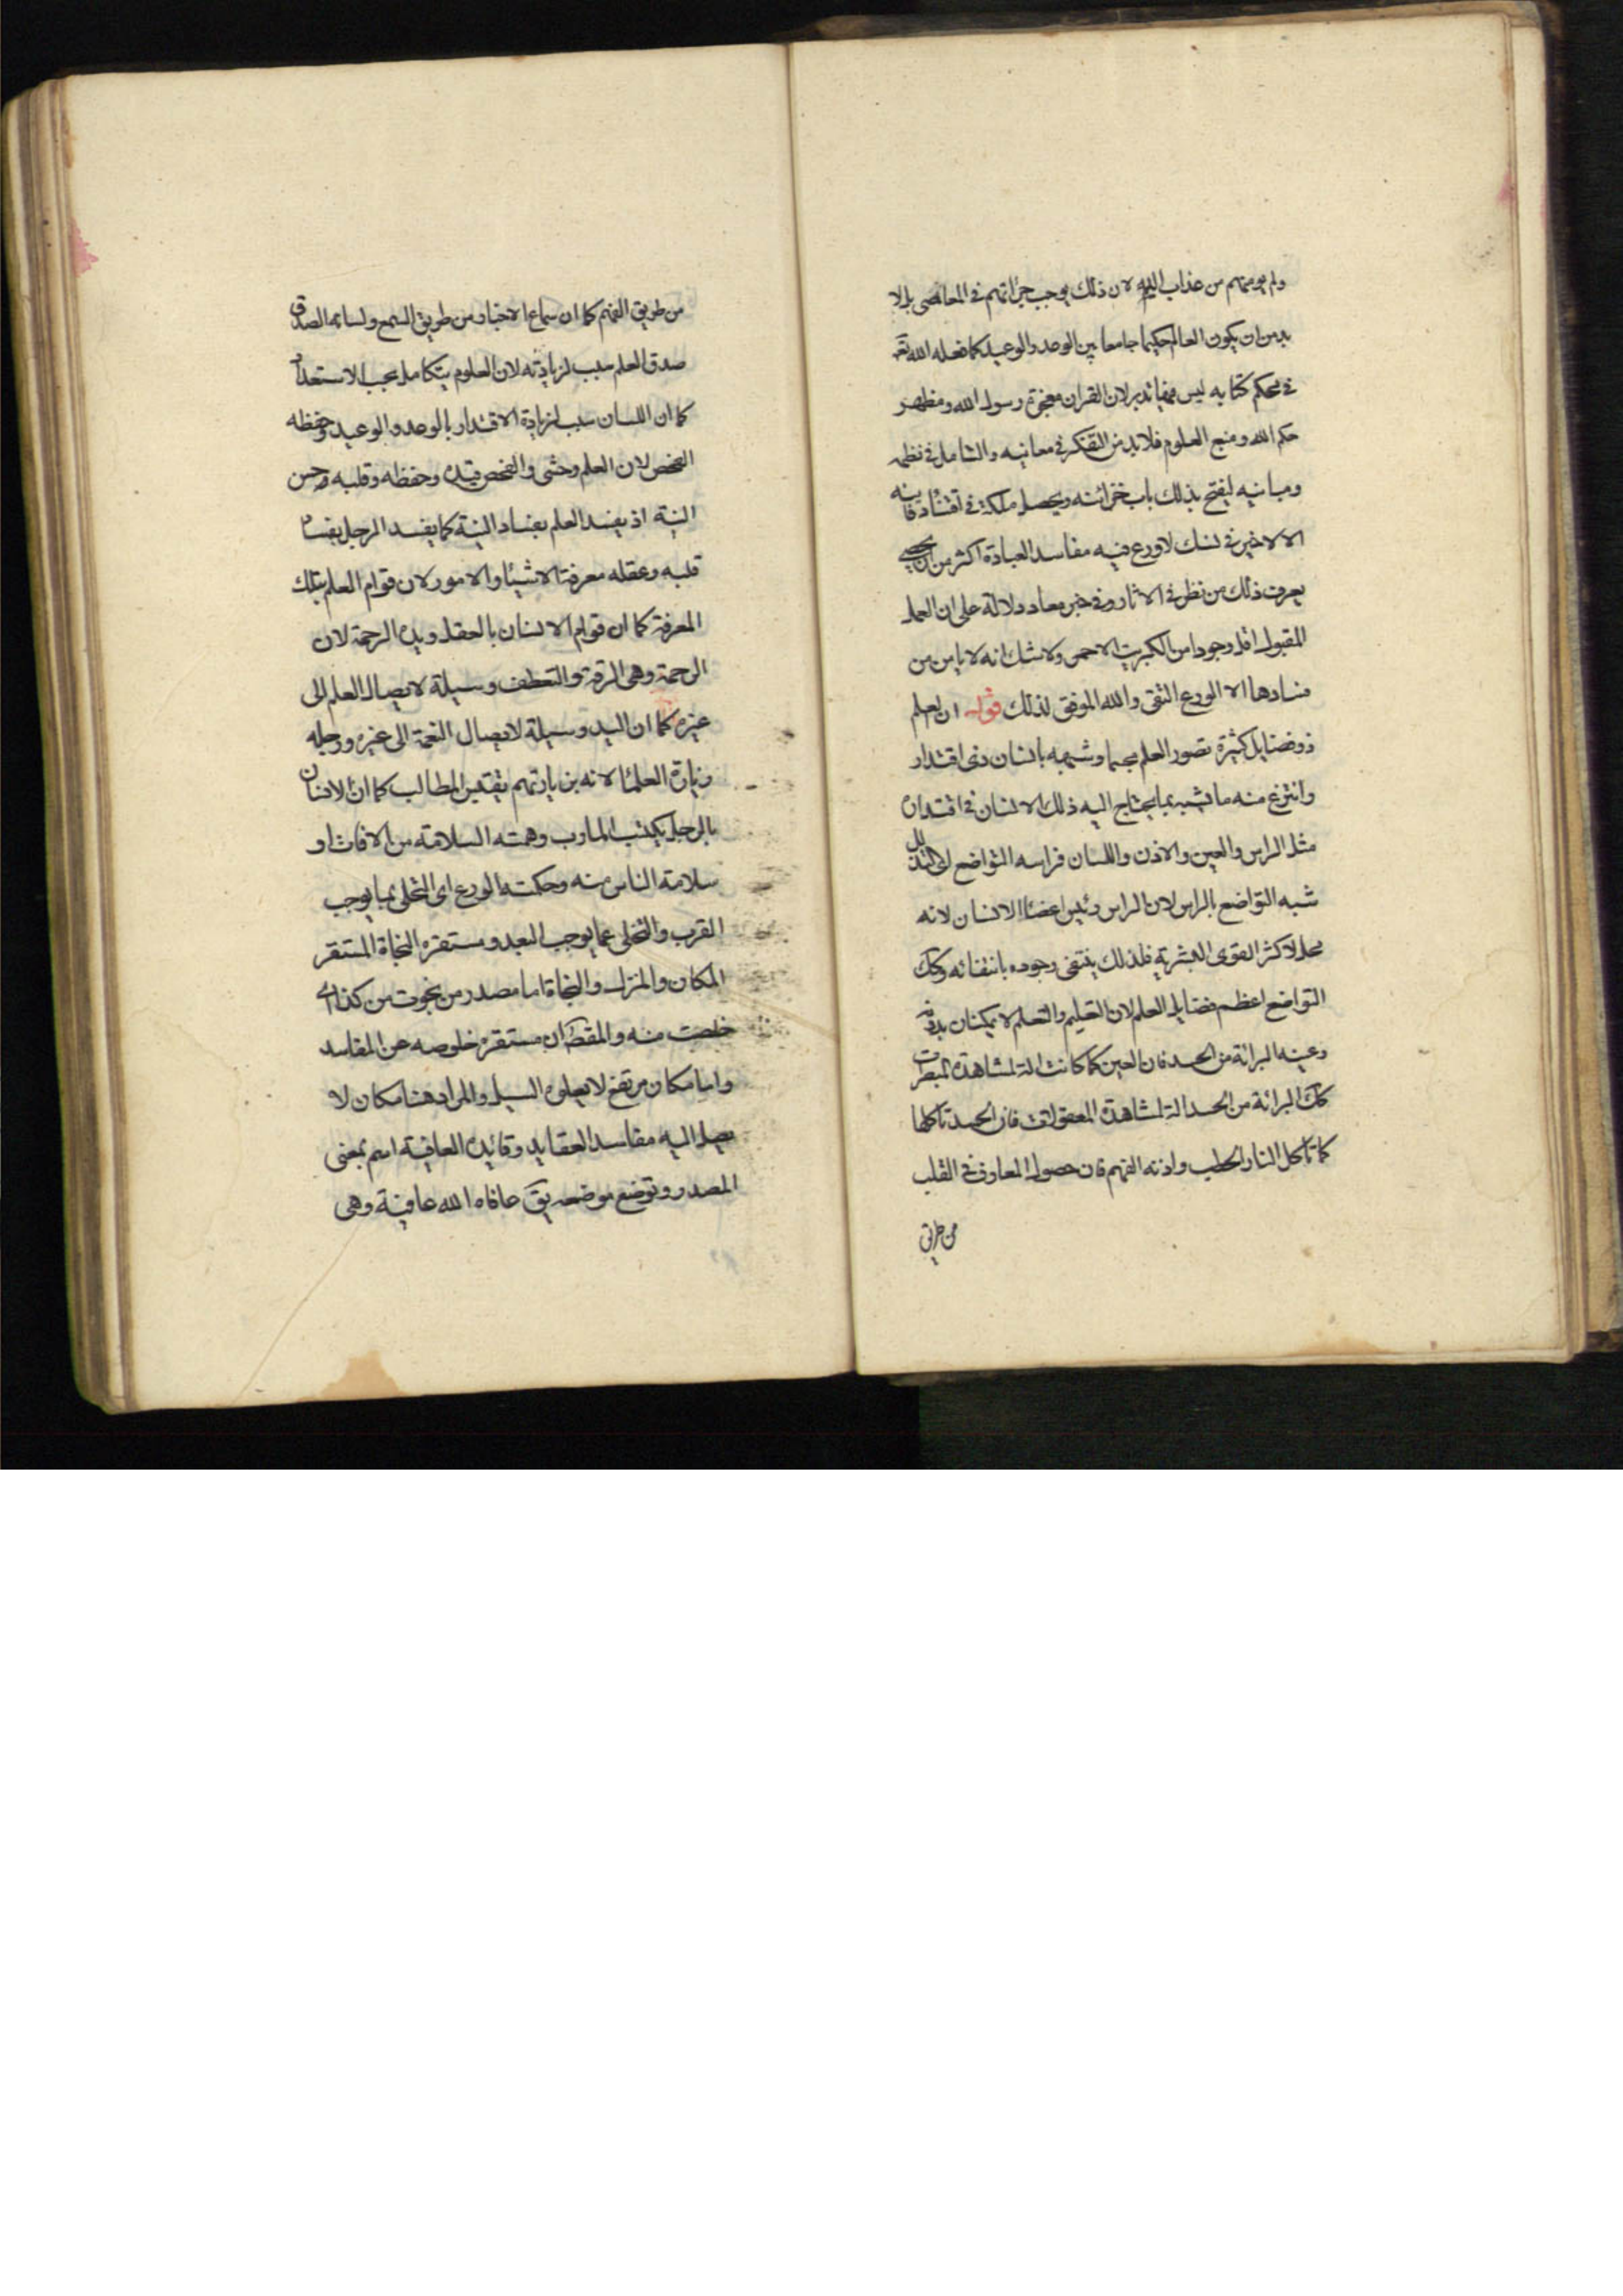 ولم يومنهم من عذاب الله لان ذلك يوجب جراتهم في المعاصي بل لا
بد من ان يكون العالم حكيما جامعا بين الوعد والوعيد كما فعله الله تعـ
في محكم كتابه ليس فيها تدبر لان القران معجزة رسول الله ومظهر
حكم الله ومنبع العلوم فلا بد من التفكر في معانيه والتامل في نظمه
ومبانيه ليفتح بذلك باب خزائنه ويحصل ملكة في اقتناء دفاينه
الا لا خير في نسك لا ورع فيه مفاسد العبادة اكثر من ان يحصى
يعرف ذلك من نظر في الاثار وفي خبر معاد دلالة على ان العمل
المقبول اقل وجودا من الكبريت الاحمر ولا شك انه لا يامن من
فسادها الا الورع التقى والله الموفق لذلك قوله ان لعلم
ذو فضايل كثيرة تصور العلم مجسما وشبهه بانسان ذى اقتدار
وانتزع منه ما تشبيه بما يحتاج اليه ذلك الانسان في اقتداره
مثل الراس والعين والاذن واللسان فراسه التواضع اى التذلل
شبه التواضع بالراس لان الراس رئيس اعضاء الانسان لانه
محل لاكثر القوى البشرية فلذلك ينتفى وجوده بانتفائه وكك
التواضع اعظم فضايل العلم لان التعليم والتعلم لا يمكنان بدونه
وعينه البرائة من الحسد فان العين كما كانت الة لمشاهدة المبصرات
كك البرائة من الحسد الة لمشاهدة المعقولات فان الحسد تاكلها
كما تاكل النار الحطب واذنه الفهم فان حصول المعارف في القلب
من طريق
من طريق الفهم كما ان سماع الاخبار من طريق السمع ولسانه الصدق
صدق العلم سبب لزيادته لان العلوم يتكامل بحسب الاستعداد
كما ان اللسان سبب لزيادة الاقتدار بالوعد والوعيد وحفظه
الفحص لان العلم وحشى والفحص قيده وحفظه وقلبه حسن
النية اذ يفسد العلم بفساد النية كما يفسد الرجل بفساد
قلبه وعقله معرفة الاشياء والامور لان قوام العلم بتلك
المعرفة كما ان قوام الانسان بالعقل ويده الرحمة لان
الرحمة وهى الرقة والتعطف وسيلة لايصال العلم الى
غيره كما ان اليد وسيلة لايصال النعمة الى غيره ورجله
زيارة العلماء لانه بزيارتهم يقتبس المطالب كما ان الانسان
بالرجل يكتسب المارب وهمته السلامة من الافات او
سلامة الناس منه وحكمته الورع اى التحلى بما يوجب
القرب والتخلى عما يوجب البعد ومستقره النجاة المستقر
المكان والمنزل والنجاة اما مصدر من نجوت من كذا اى
خلصت منه والمقصود ان مستقره خلوصه عن المفاسد
واما مكان مرتفع لا يعلوه السيل والمراد هنا مكان لا
يصل اليه مفاسد العقايد وقائده العافية اسم بمعنى
المصدر وتوضع موضعه يق عافاه الله عافية وهى